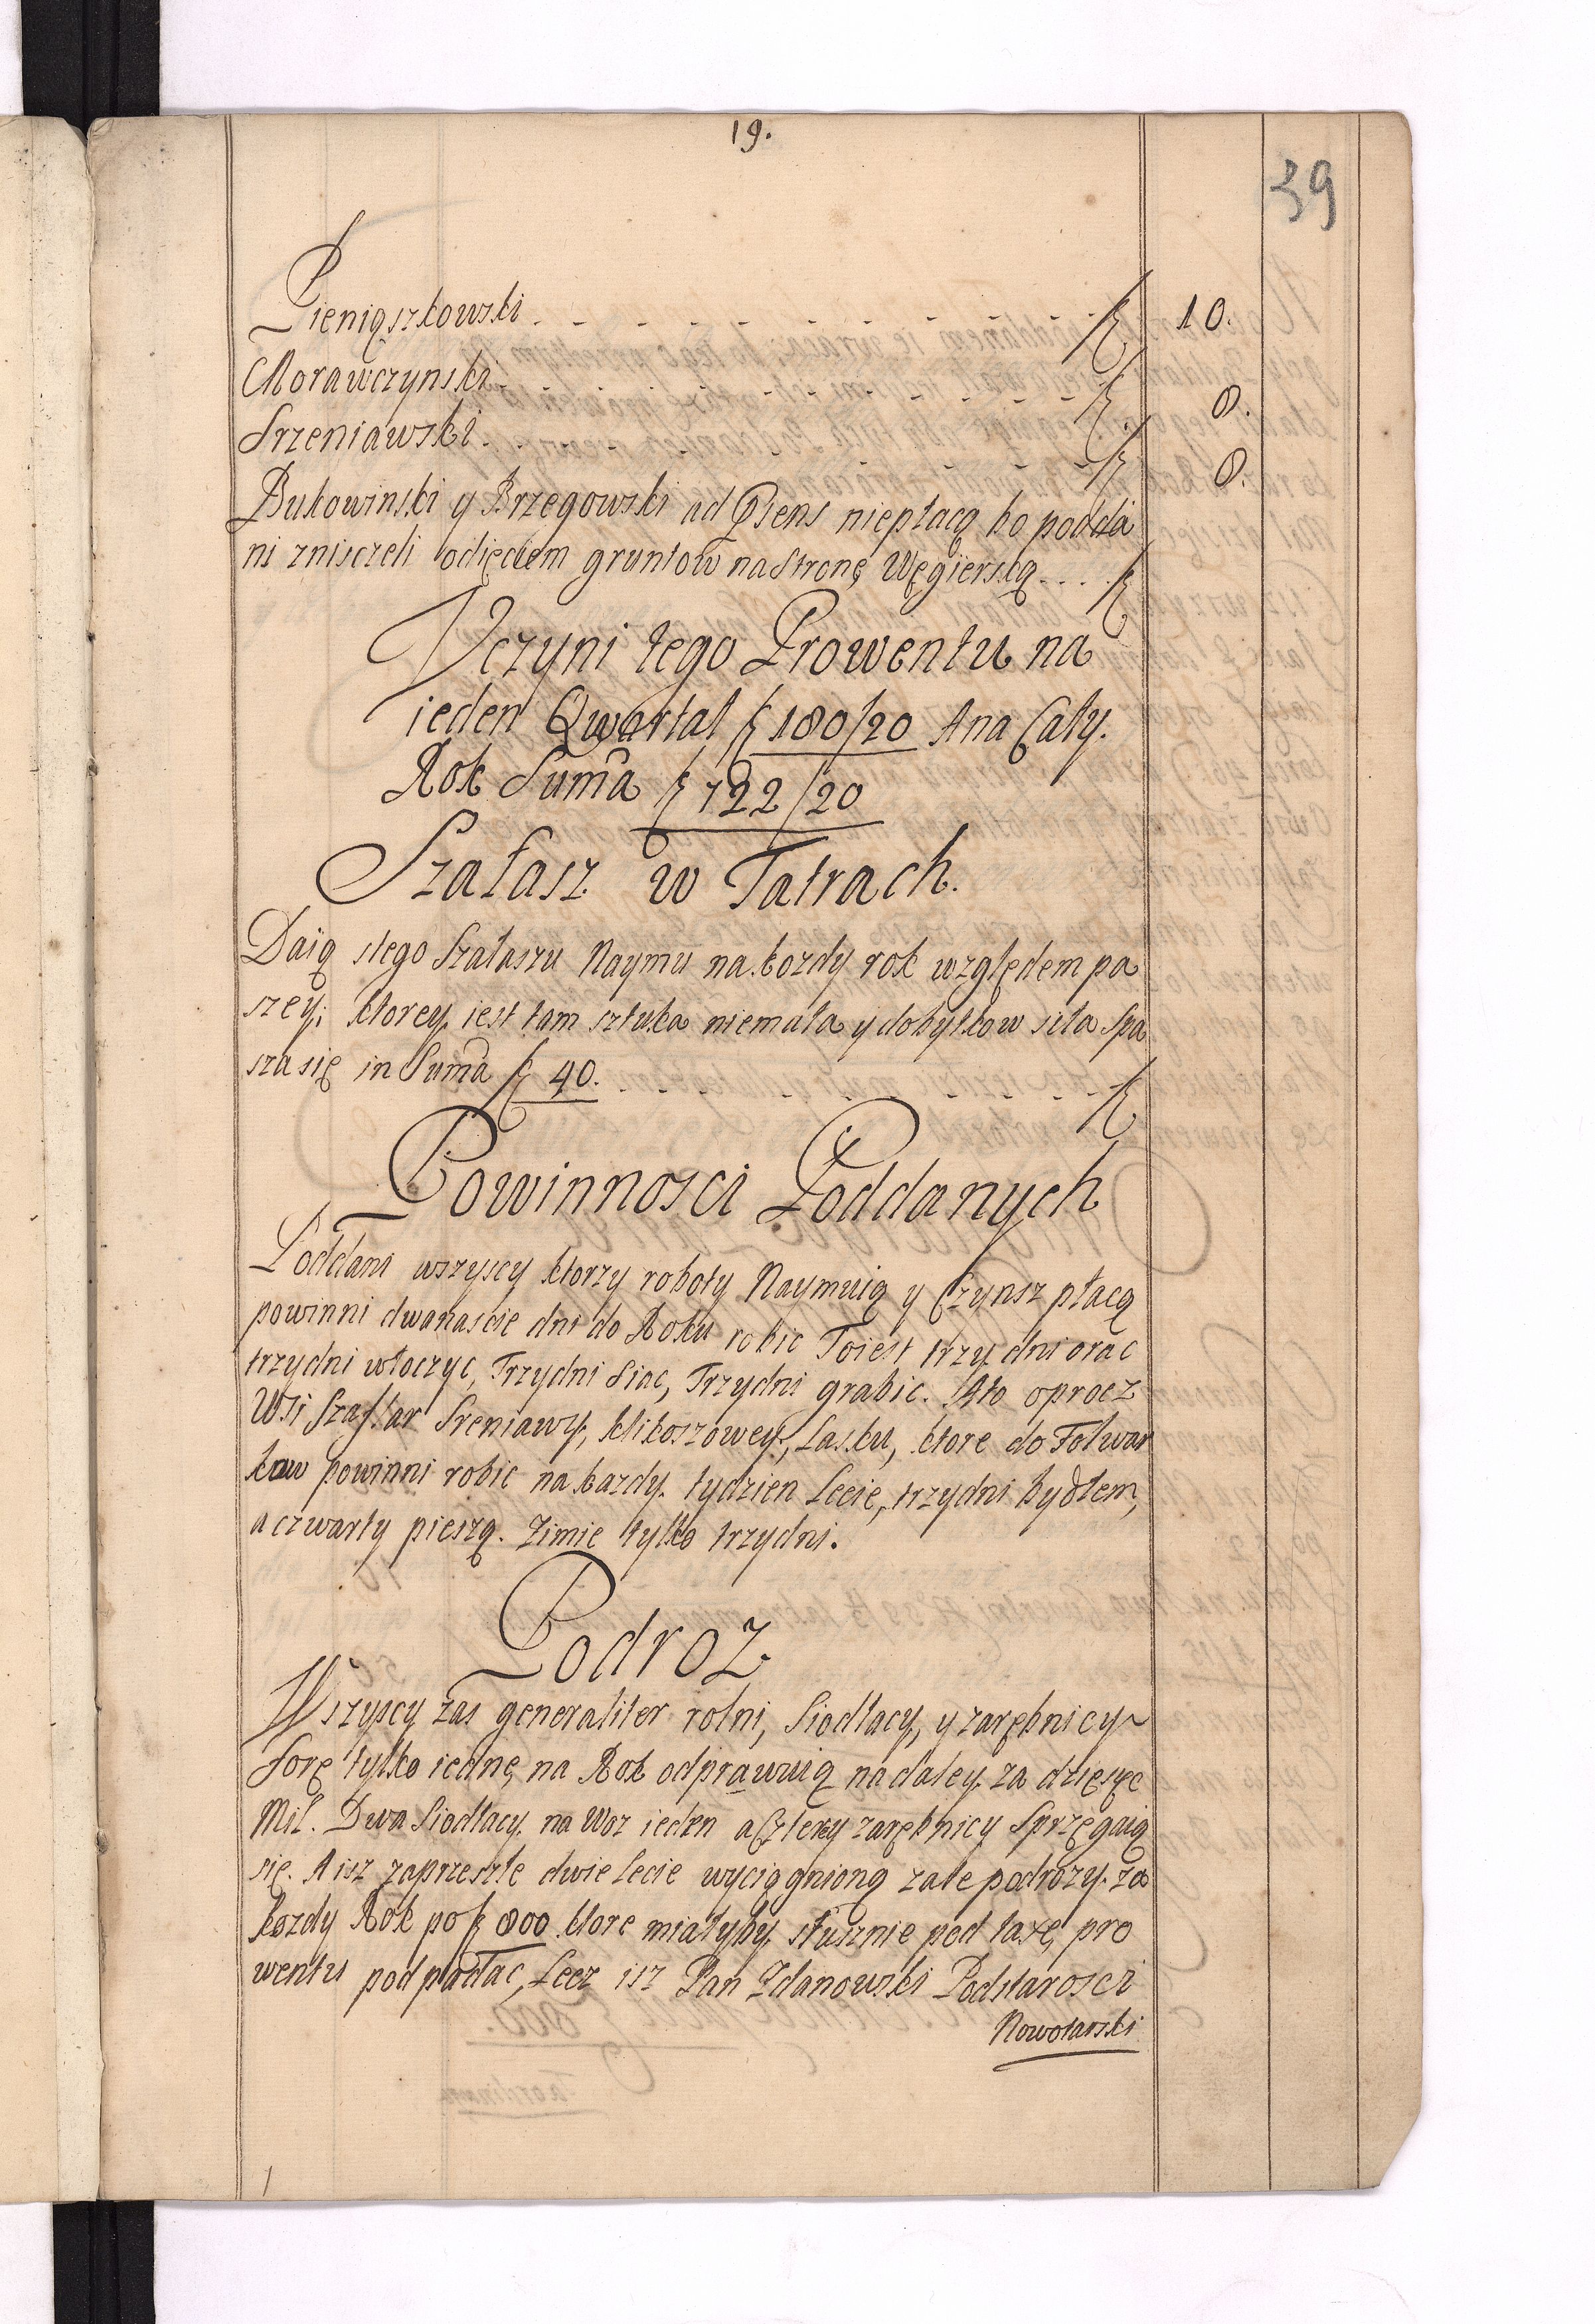 19.
39
Pieniąszkowski . - - - - - - - - - - f 10.
Morawczynski. - - - - - - - - - - f 8.
Srzeniawski . - - - - - - - - - - f 8.
Bukowinski y Brzegowski ad Psens niepłacą bo podda
ni zniszczeli odięciem gruntow na Stronę Węgierską . . . . f
Vczyni tego Prowentu na
ieden Qwartał f 180/20 Ana Cały.
Rok Suma f 722/20
Szałasz w Tatrach.
Daią stego Szałaszu Naymu na kozdy rok względem pa
szey; ktorey iest tam sztuka niemała y dobytkow siła Spa
sza się in Suma f 40. . . . - - - - - - - f
Powinnosci Poddanych
Poddani wszyscy ktorzy roboty Naymuią y Czynsz płacą
powinni dwanascie dni do Roku robic Toiest trzy dni orac
trzydni włoczyc, Trzydni Siac, Trzydni grabic. Ato oprocz
Wsi Szaflar Sreniawy, Klikoszowey, Lasku, ktore do Folwar
kow powinni robic na kazdy tydzien Lecie, trzydni bydłem,
a czwarty pieszą. Zimie tylko trzydni.
Podroz
Wszyscy zas generaliter rolni, Siodłacy, y zarębnicy
Forę tylko iednę na Rok odprawuią nadaley za dzięsęc
Mil. Dwa Siodłacy na Woz ieden a Cztery zarębnicy Sprzęgaią
się. A isz zaprzeszłe dwie Lecie wyciągniono zate podrozy za
kozdy Rok po f 800 ktore miałyby słusznie pod taxę pro
wentu podpadac, Lecz isz Pan Zdanowski Podstarosci
Nowotarski